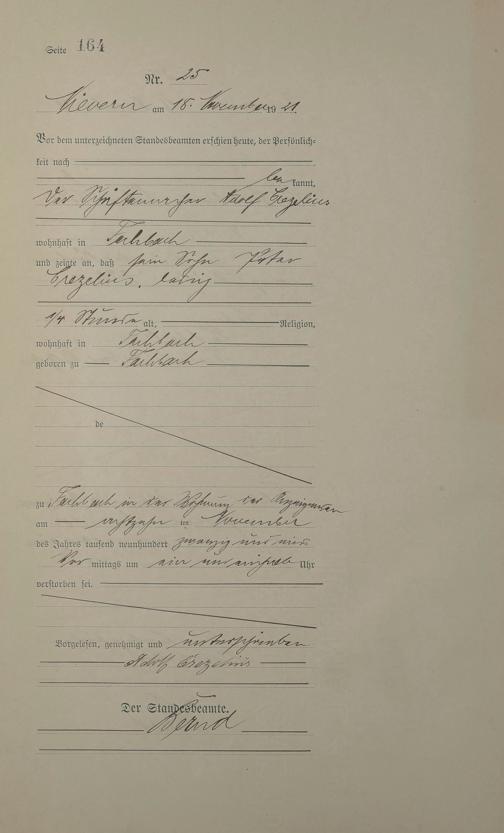 Seite 164
Nr. 25
Nievern am 18. November 1921.
Vor dem unterzeichneten Standesbeamten erschien heute, der Persönlich-
keit nach
bekannt,
Der Schriftmacher Adolf Crezelius
wohnhaft in Fachbach
und zeigte an, daß sein Sohn Peter
Crezelius, ledig
1/4 Stunde alt, Religion,
wohnhaft in Fachbach
geboren zu Fachbach
de
zu Fachbach in der Wohnung des Anzeigenden
am achtzehn ten November
des Jahres tausend neunhundert zwanzig und eins
Vor mittags um ein und einhalb Uhr
verstorben sei.
Vorgelesen, genehmigt und unterschrieben
Adolf Crezelius
Der Standesbeamte.
Bernd